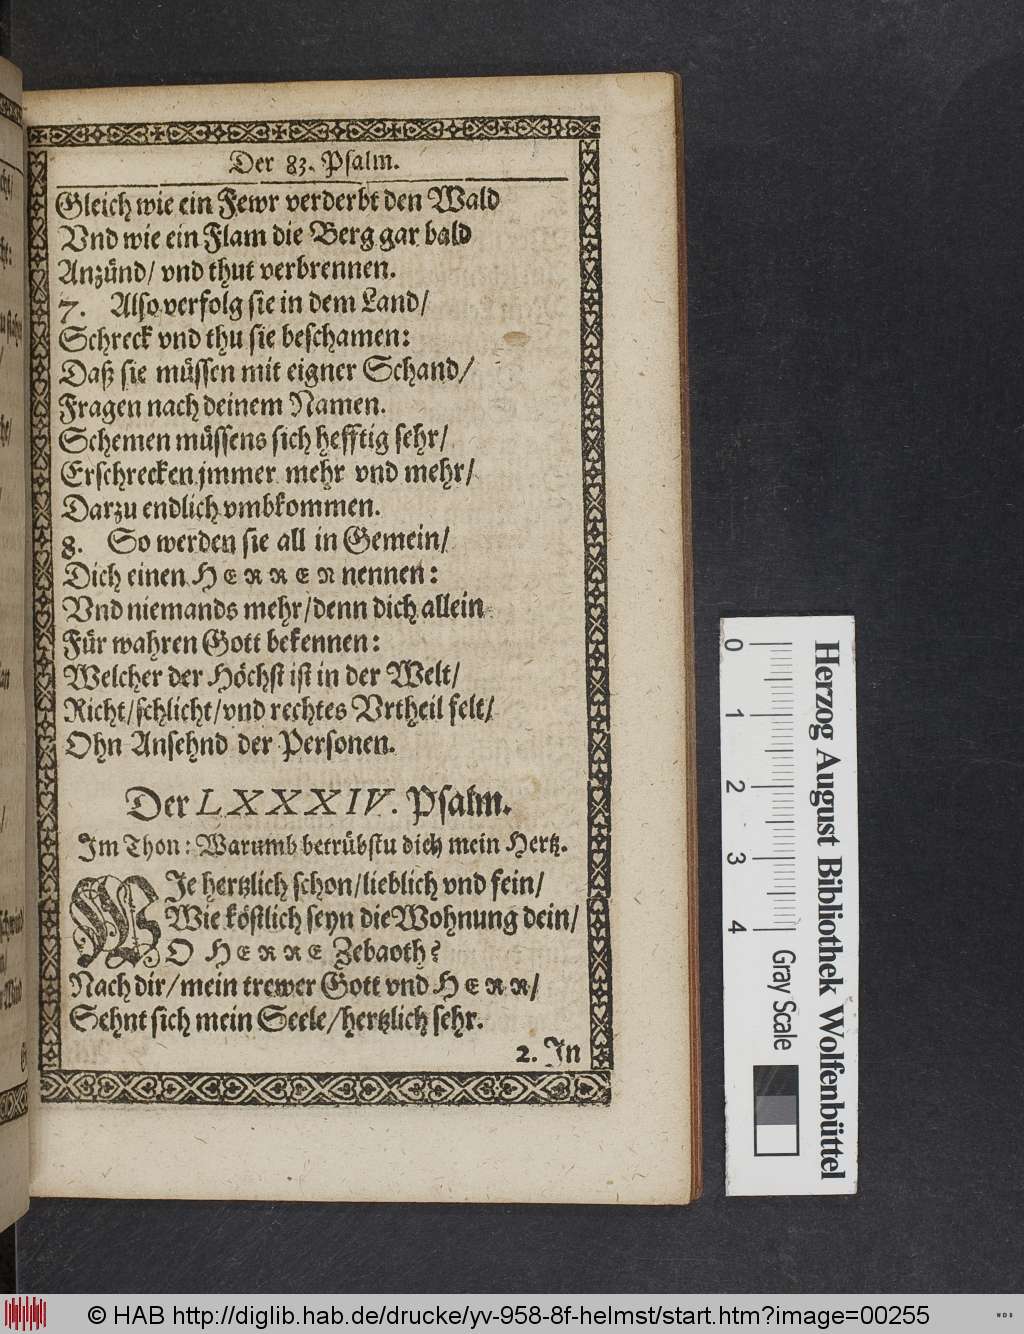 Der 83. Psalm.
Gleich wie ein Fewr verderbt den Wald
Vnd wie ein Flam die Berg gar bald
Anzünd/ vnd thut verbrennen.
7. Also verfolg sie in dem Land/
Schreck vnd thu sie beschamen:
Daß sie müssen mit eigner Schand/
Fragen nach deinem Namen.
Schemen müssens sich hefftig sehr/
Erschrecken jmmer mehr vnd mehr/
Darzu endlich vmbkommen.
8. So werden sie all in Gemein/
Dich einen HERREN nennen:
Vnd niemands mehr/denn dich allein
Für wahren Gott bekennen:
Welcher der Höchst ist in der Welt/
Richt/schlicht/vnd rechtes Vrtheil felt/
Ohn Ansehnd der Personen.
Der LXXXIV. Psalm.
Im Thon: Warumb betrübstu dich mein Hertz.
WIe hertzlich schon/lieblich vnd fein/
Wie köstlich seyn die Wohnung dein/
O HERRE Zebaoth?
Nach dir/mein trewer Gott vnd HERR/
Sehnt sich mein Seele/hertzlich sehr.
2. In
0 1 2 3 4
Gray Scale
Herzog August Bibliothek Wolfenbüttel
© HAB http://diglib.hab.de/drucke/yv-958-8f-helmst/start.htm?image=00255